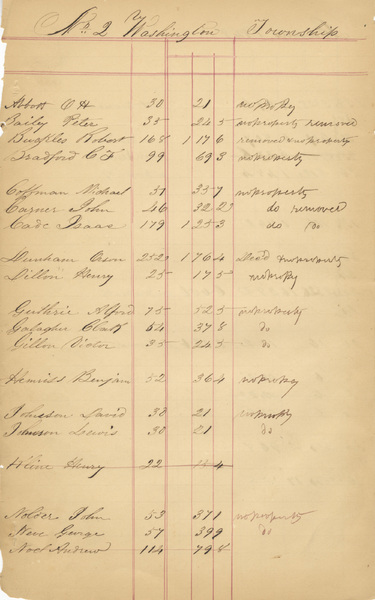 No. 2 Washington Township
Abbott C H 30 21 no propty
Bailey Peter 35 24 5 no property removed
Robert 168 1 17 6 removed & no property
Bradford C F 99 69 3 no property
Coffman Michael 51 35 7 no property
Carner John 46 32 2 do removed
Cade Isaac 179 1 25 3 do do
Dunham Oson 252 1 76 4 Dead no property
Dillon Henry 25 17 5 no propty
Guthrie Alford 75 52 5 no property
Galagher Clark 54 37 8 do
Gillon Victor 35 24 5 do
Benjam 52 36 4 no propty
Johnson David 30 21 no propty
Johnson Lewis 30 21 do
Kline Henry 22 4
Nolder John 53 37 1 no property
George 57 39 9 do
Noel Andrew 114 79 8